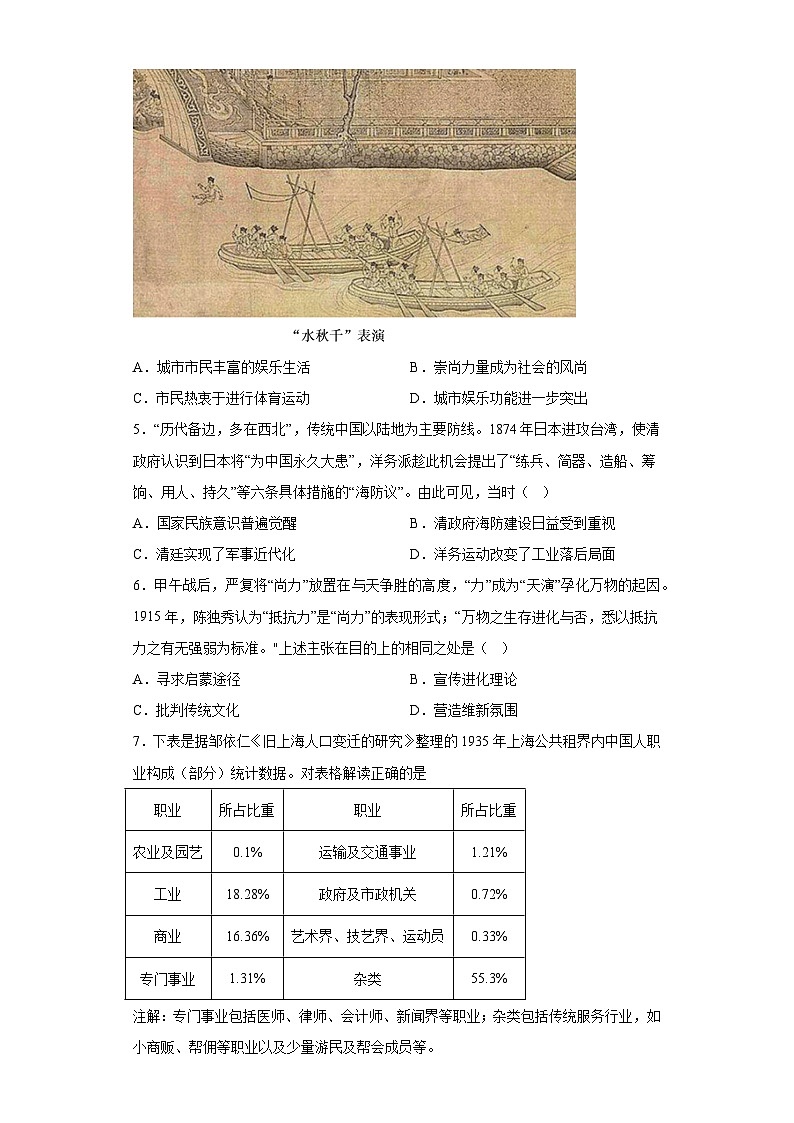 “水秋千”表演
A．城市市民丰富的娱乐生活 B．崇尚力量成为社会的风尚
C．市民热衷于进行体育运动 D．城市娱乐功能进一步突出
5．“历代备边，多在西北”，传统中国以陆地为主要防线。1874年日本进攻台湾，使清
政府认识到日本将“为中国永久大患”，洋务派趁此机会提出了“练兵、简器、造船、筹
饷、用人、持久”等六条具体措施的“海防议”。由此可见，当时（ ）
A．国家民族意识普遍觉醒 B．清政府海防建设日益受到重视
C．清廷实现了军事近代化 D．洋务运动改变了工业落后局面
6．甲午战后，严复将“尚力”放置在与天争胜的高度，“力”成为“天演”孕化万物的起因。
1915年，陈独秀认为“抵抗力”是“尚力”的表现形式；“万物之生存进化与否，悉以抵抗
力之有无强弱为标准。"上述主张在目的上的相同之处是（ ）
A．寻求启蒙途径 B．宣传进化理论
C．批判传统文化 D．营造维新氛围
7．下表是据邹依仁《旧上海人口变迁的研究》整理的1935年上海公共租界内中国人职
业构成（部分）统计数据。对表格解读正确的是
职业 所占比重 职业 所占比重
农业及园艺 0.1% 运输及交通事业 1.21%
工业 18.28% 政府及市政机关 0.72%
商业 16.36% 艺术界、技艺界、运动员 0.33%
专门事业 1.31% 杂类 55.3%
注解：专门事业包括医师、律师、会计师、新闻界等职业；杂类包括传统服务行业，如
小商贩、帮佣等职业以及少量游民及帮会成员等。